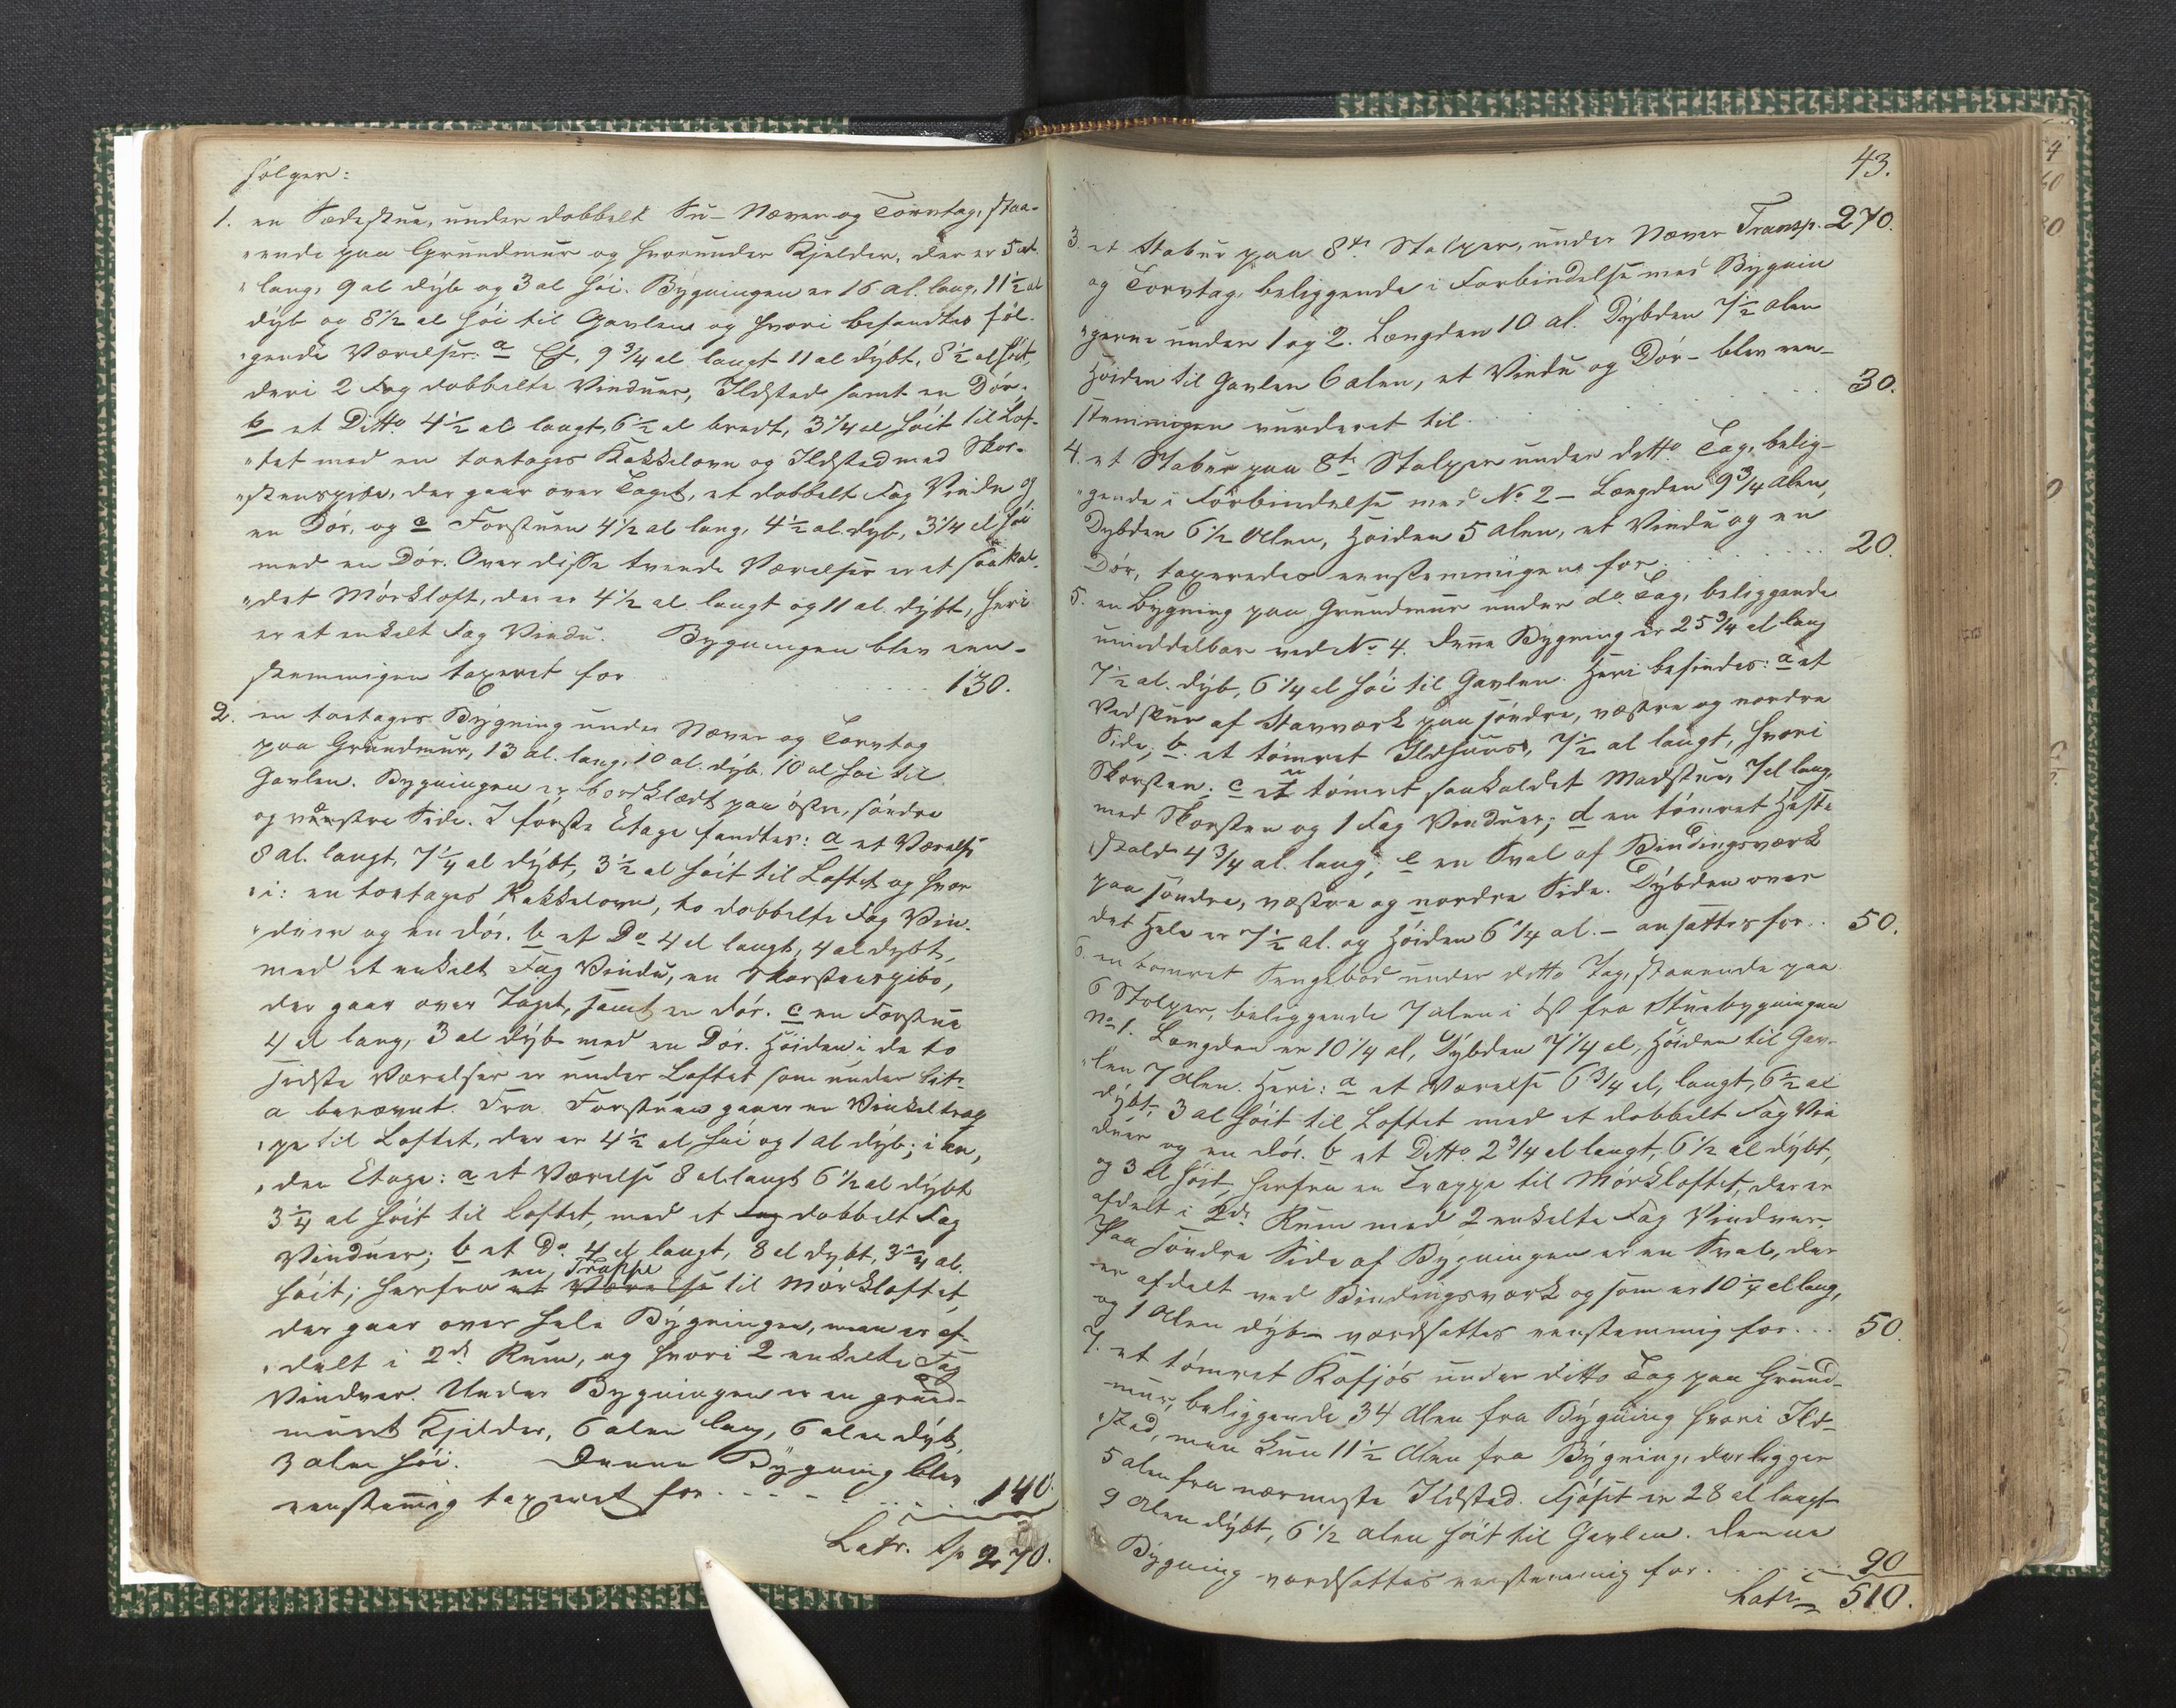 følger:
1. en Sædestue, under dobbelt Su- Næver og Torvtag, staa-
"ende paa Grundmur og hvorunder Kjelder, der er 5 al.
" lang, 9 al dyb og 3 al høi. Bygningen er 16 al. lang, 11 1/2 al
dyb og 8 1/2 al høi til Gavlen og hvori befandtes føl-
"gende Værelser: a Et, 9 3/4 al langt 11 al dybt, 8 1/2 al høit,
deri 2 Fag dobbelte Vinduer, Ildsted samt en Dør.
b et Ditto 4 1/2 al langt, 6 1/2 al bredt, 3 1/4 al høit til Lof-
"tet med en toetages Kakkelovn og Ildsted med Skor-
"stenspibe, der gaar over Taget, et dobbelt Fag Vindu og
en Dør, og c Forstuen 4 1/2 al lang, 4 1/2 al. dyb, 3 1/4 al høi
med en Dør. Over disse tvende Værelser er et saakal-
"det Mørkloft, der er 4 1/2 al langt og 11 al. dybt, heri
er et enkelt Fag Vindu. Bygningen blev een-
stemmigen taxeret for 130.
2. en toetages Bygning under Næver og Torvtag
paa Grundmur, 13 al. lang, 10 al. dyb. 10 al høi til
Gavlen. Bygningen er bordklædt paa østre, søndre
og vestre Side. I første Etage fandtes: a et Værelse
8 al. langt, 7 1/4 al dybt, 3 1/2 al høit til Loftet og hvor
"i: en toetages Kakkelovn, to dobbelte Fag Vin-
"duer og en dør. b et Do 4 al langt, 4 al dybt,
med et enkelt Fag Vindu, en Skorstenspibe,
der gaar over Taget, samt en dør. c en Forstue
4 al lang, 3 al dyb med en Dør. Høiden i de to
sidste Værelser er under Loftet som under Litr.
a benævnt. Fra Forstuen gaar en Vinkeltrap
"pe til Loftet, der er 4 1/2 al høi og 1 al dyb; i an,
"den Etage: a et Værelse 8 al langt 6 1/2 al dybt
3 1/4 al høit til Loftet, med et dobbelt Fag
Vinduer; b et Do. 4 al langt, 8 al dybt, 3 1/4 al.
en Trappe
høit; herfra et Værelse til Mørkloftet,
der gaar over hele Bygningen, men er af-
"delt i 2de Rum, og hvori 2 enkelte Fag
Vinduer. Under Bygningen er en grund-
muret Kjelder, 6 alen lang, 6 alen dyb,
3 alen høi. Denne Bygning blev
eenstemmig taxeret for 140.
Latr. Sp 270.
43.
Transp. 270.
3. et Stabur paa 8te Stolper, under Næver
og Torvtag, beliggende i Forbindelse med Bygnin
"gerne under 1 og 2. Længden 10 al. Dybden 7 1/2 alen
Høiden til Gavlen 6 alen, et Vindu og Dør - blev een-
stemmigen vurderet til 30.
4. et Stabur paa 8te Stolper under ditto Tag, belig-
"gende i Forbindelse med No. 2 - Længden 9 3/4 Alen,
Dybden 6 1/2 Alen, Høiden 5 Alen, et Vindu og en
Dør, taxeredes eenstemmigen for 20.
5. en Bygning paa Grundmur under do. Tag, beliggende
umiddelbar ved No. 4. Denne Bygning er 25 3/4 al lang
7 1/2 al. dyb, 6 1/4 al høi til Gavlen. Heri befindes: a et
Vedskur af Stavværk paa søndre, vestre og nordre
Side; b. et tømret Ildhuus, 7 1/2 al langt, hvori
Skorsten; c en tømret saakaldet Madstue, 7 al lang,
med Skorsten og 1 Fag Vinduer; d en tømret Heste
"stald 4 3/4 al. lang; e en Sval af Bindingsværk
paa søndre, vestre og nordre Side. Dybden over
det Hele er 7 1/2 al. og Høiden 6 1/4 al. - ansattes for.. 50.
6. en tømret Sengebod under ditto Tag, staaende paa
6 Stolper, beliggende 7 alen i øst fra Stuebygningen
No. 1. Længden er 10 1/4 al, Dybden 7 1/4 al, Høiden til Gav-
"len 7 Alen. Heri: a et Værelse 6 3/4 al, langt, 6 1/2 al
dybt, 3 al høit til Loftet med et dobbelt Fag Vin
duer og en dør. b et Ditto 2 3/4 al langt, 6 1/2 al dybt,
og 3 al høit, herfra en Trappe til Mørkloftet, der er
afdelt i 2de Rum med 2 enkelte Fag Vinduer.
Paa søndre Side af Bygningen er en Sval, der
er afdelt ved Bindingsværk og som er 10 1/4 al lang,
og 1 Alen dyb - værdsattes eenstemmig for... 50.
7. et tømret Kofjøs under ditto Tag paa Grund-
mur, beliggende 34 Alen fra Bygning hvori Ild-
"sted, men kun 11 1/2 Alen fra Bygning, der ligger
5 alen fra nærmeste Ildsted. Fjøset er 28 al langt
9 Alen dybt, 6 1/2 alen høit til Gavlen. Denne
Bygning værdsattes eenstemmig for 90
Latr. 510.